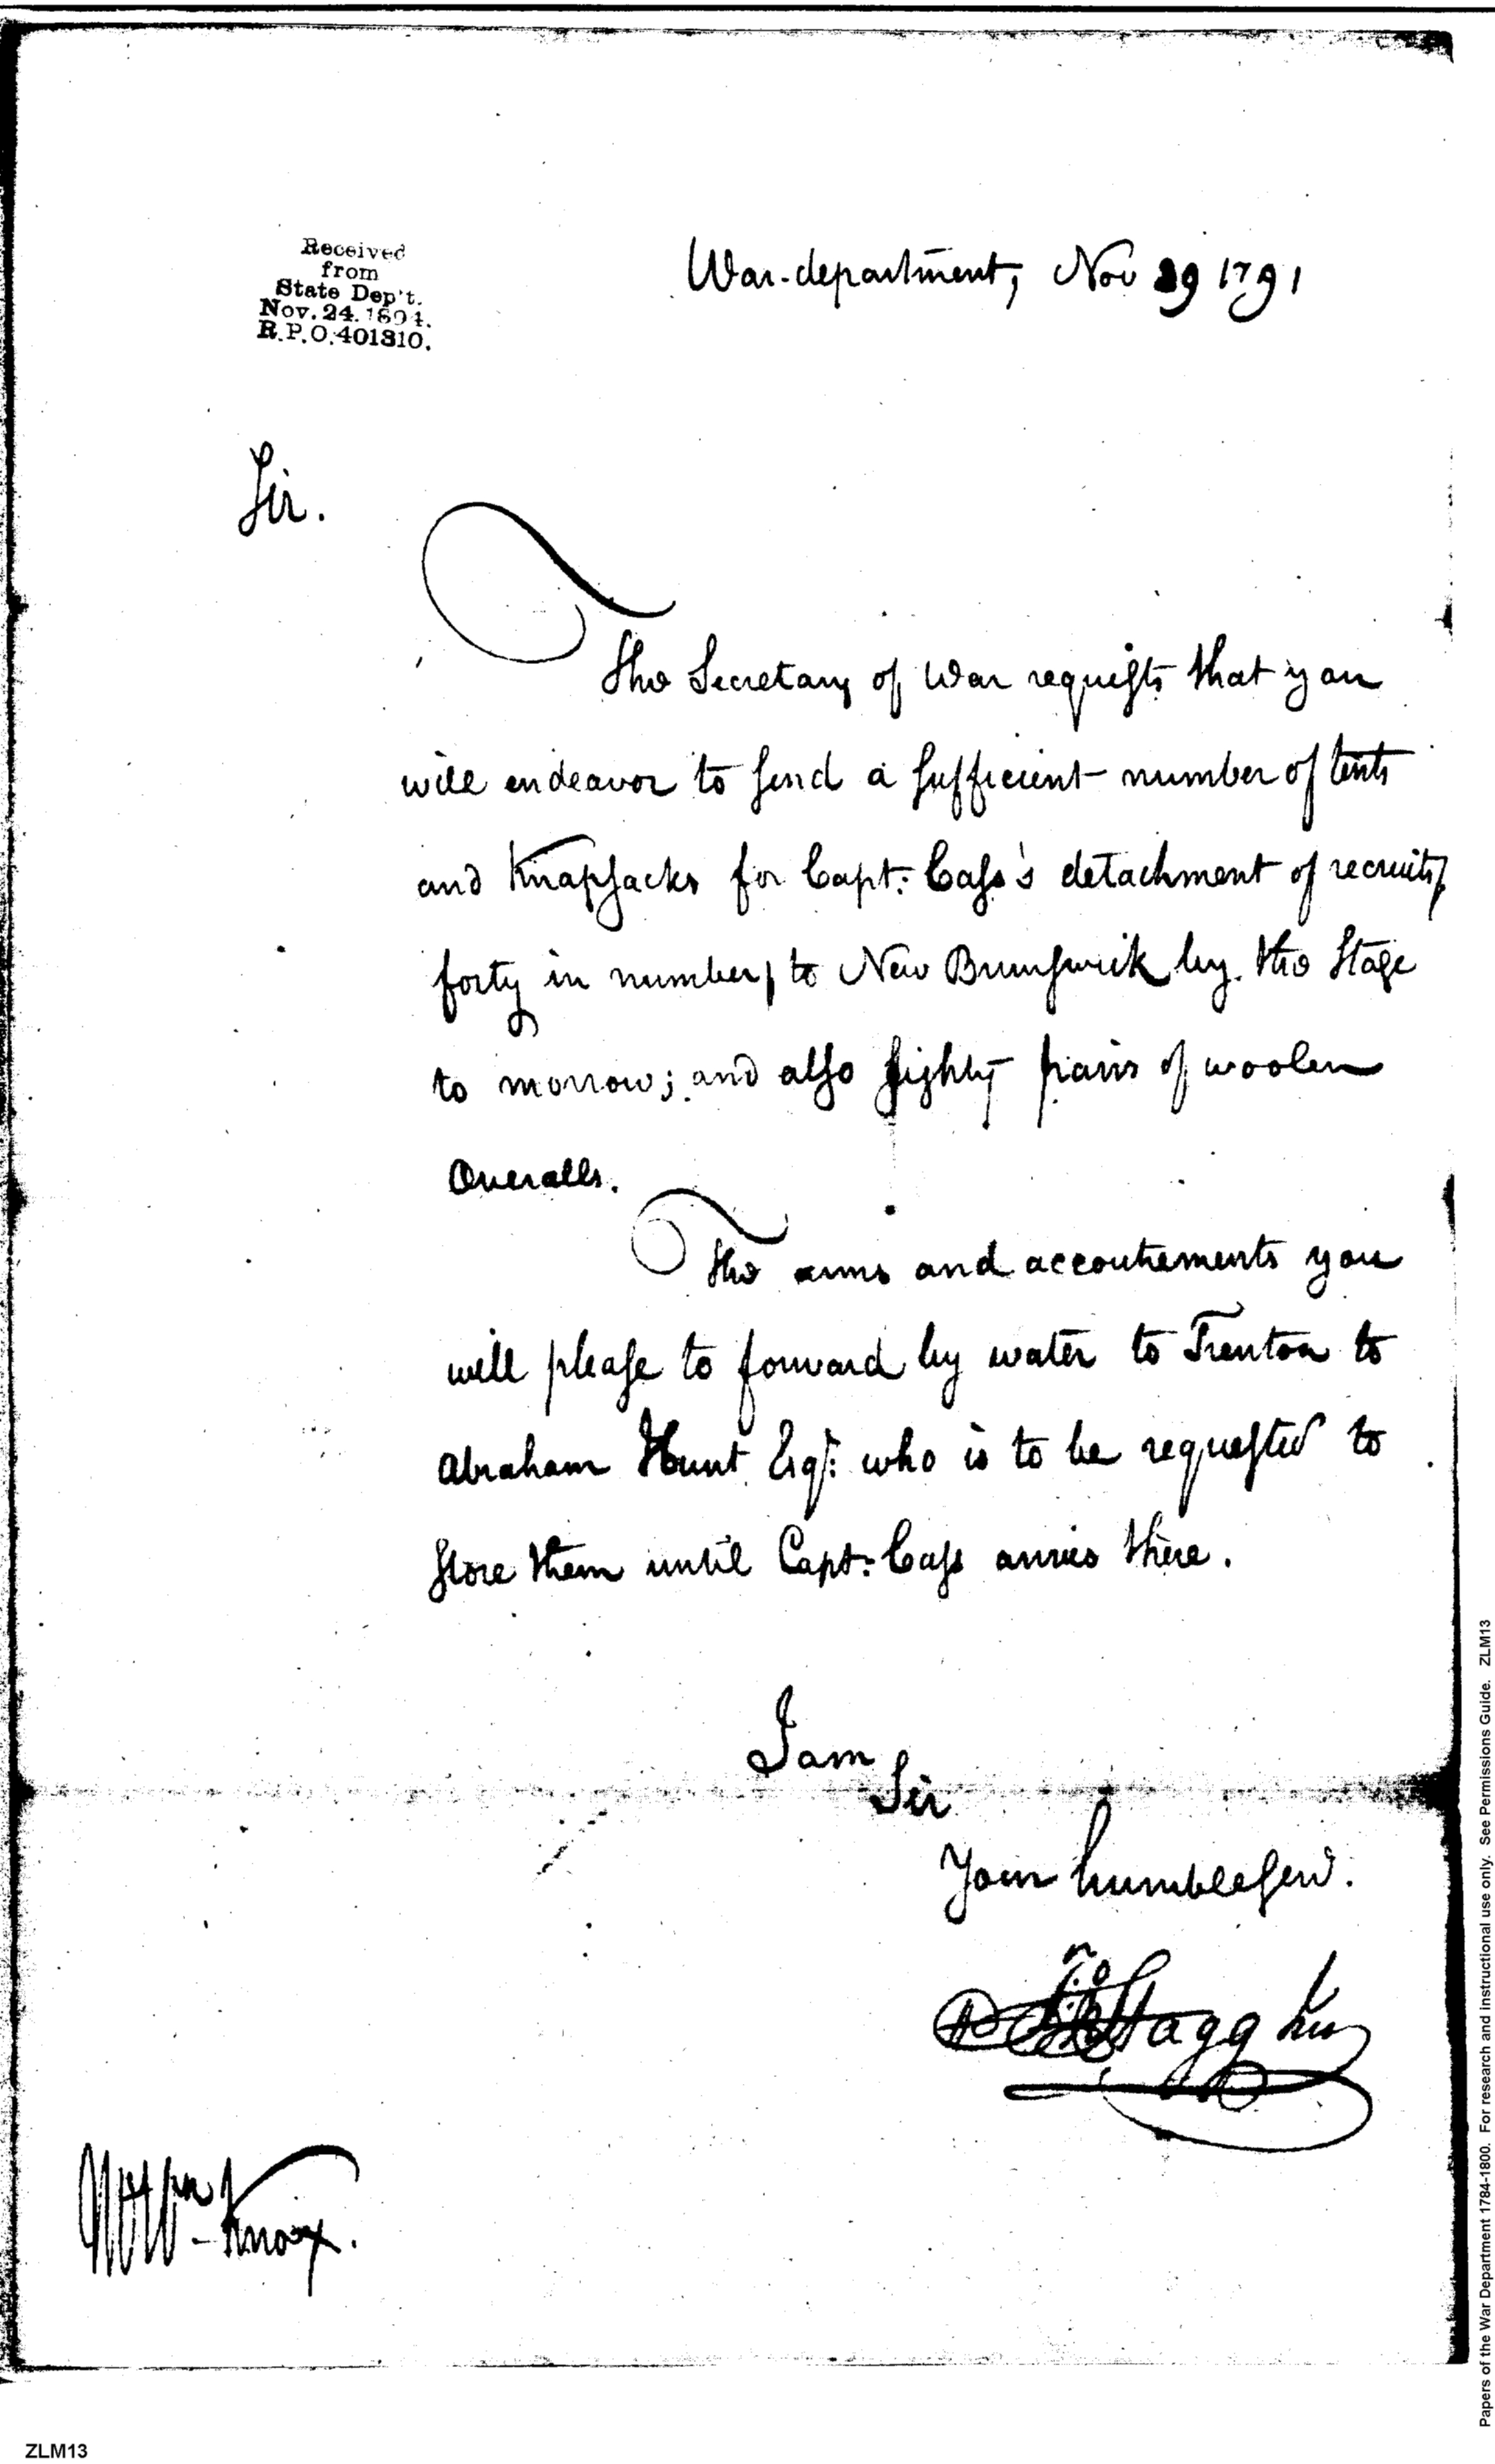 Received
from
State Dep't.
Nov. 24. 1894.
R.P.O. 401310.
War-department, Nov 29 1791
Sir.
The Secretary of War requests that you
will endeavor to send a sufficient number of tents
and Knapsacks for Capt: Cass's detachment of recruits,
forty in number, to New Brunswick by the Stage
to morrow; and also Eighty pairs of woolen
Overalls.
The arms and accoutrements you
will please to forward by water to Trenton to
Abraham Hunt Esqr: who is to be requested to
store them until Capt: Cass arrives there.
I am
Sir
Your humble serv.
Jno Stagg Junr
Mr Wm Knox.
Papers of the War Department 1784-1800. For research and instructional use only. See Permissions Guide. ZLM13
ZLM13